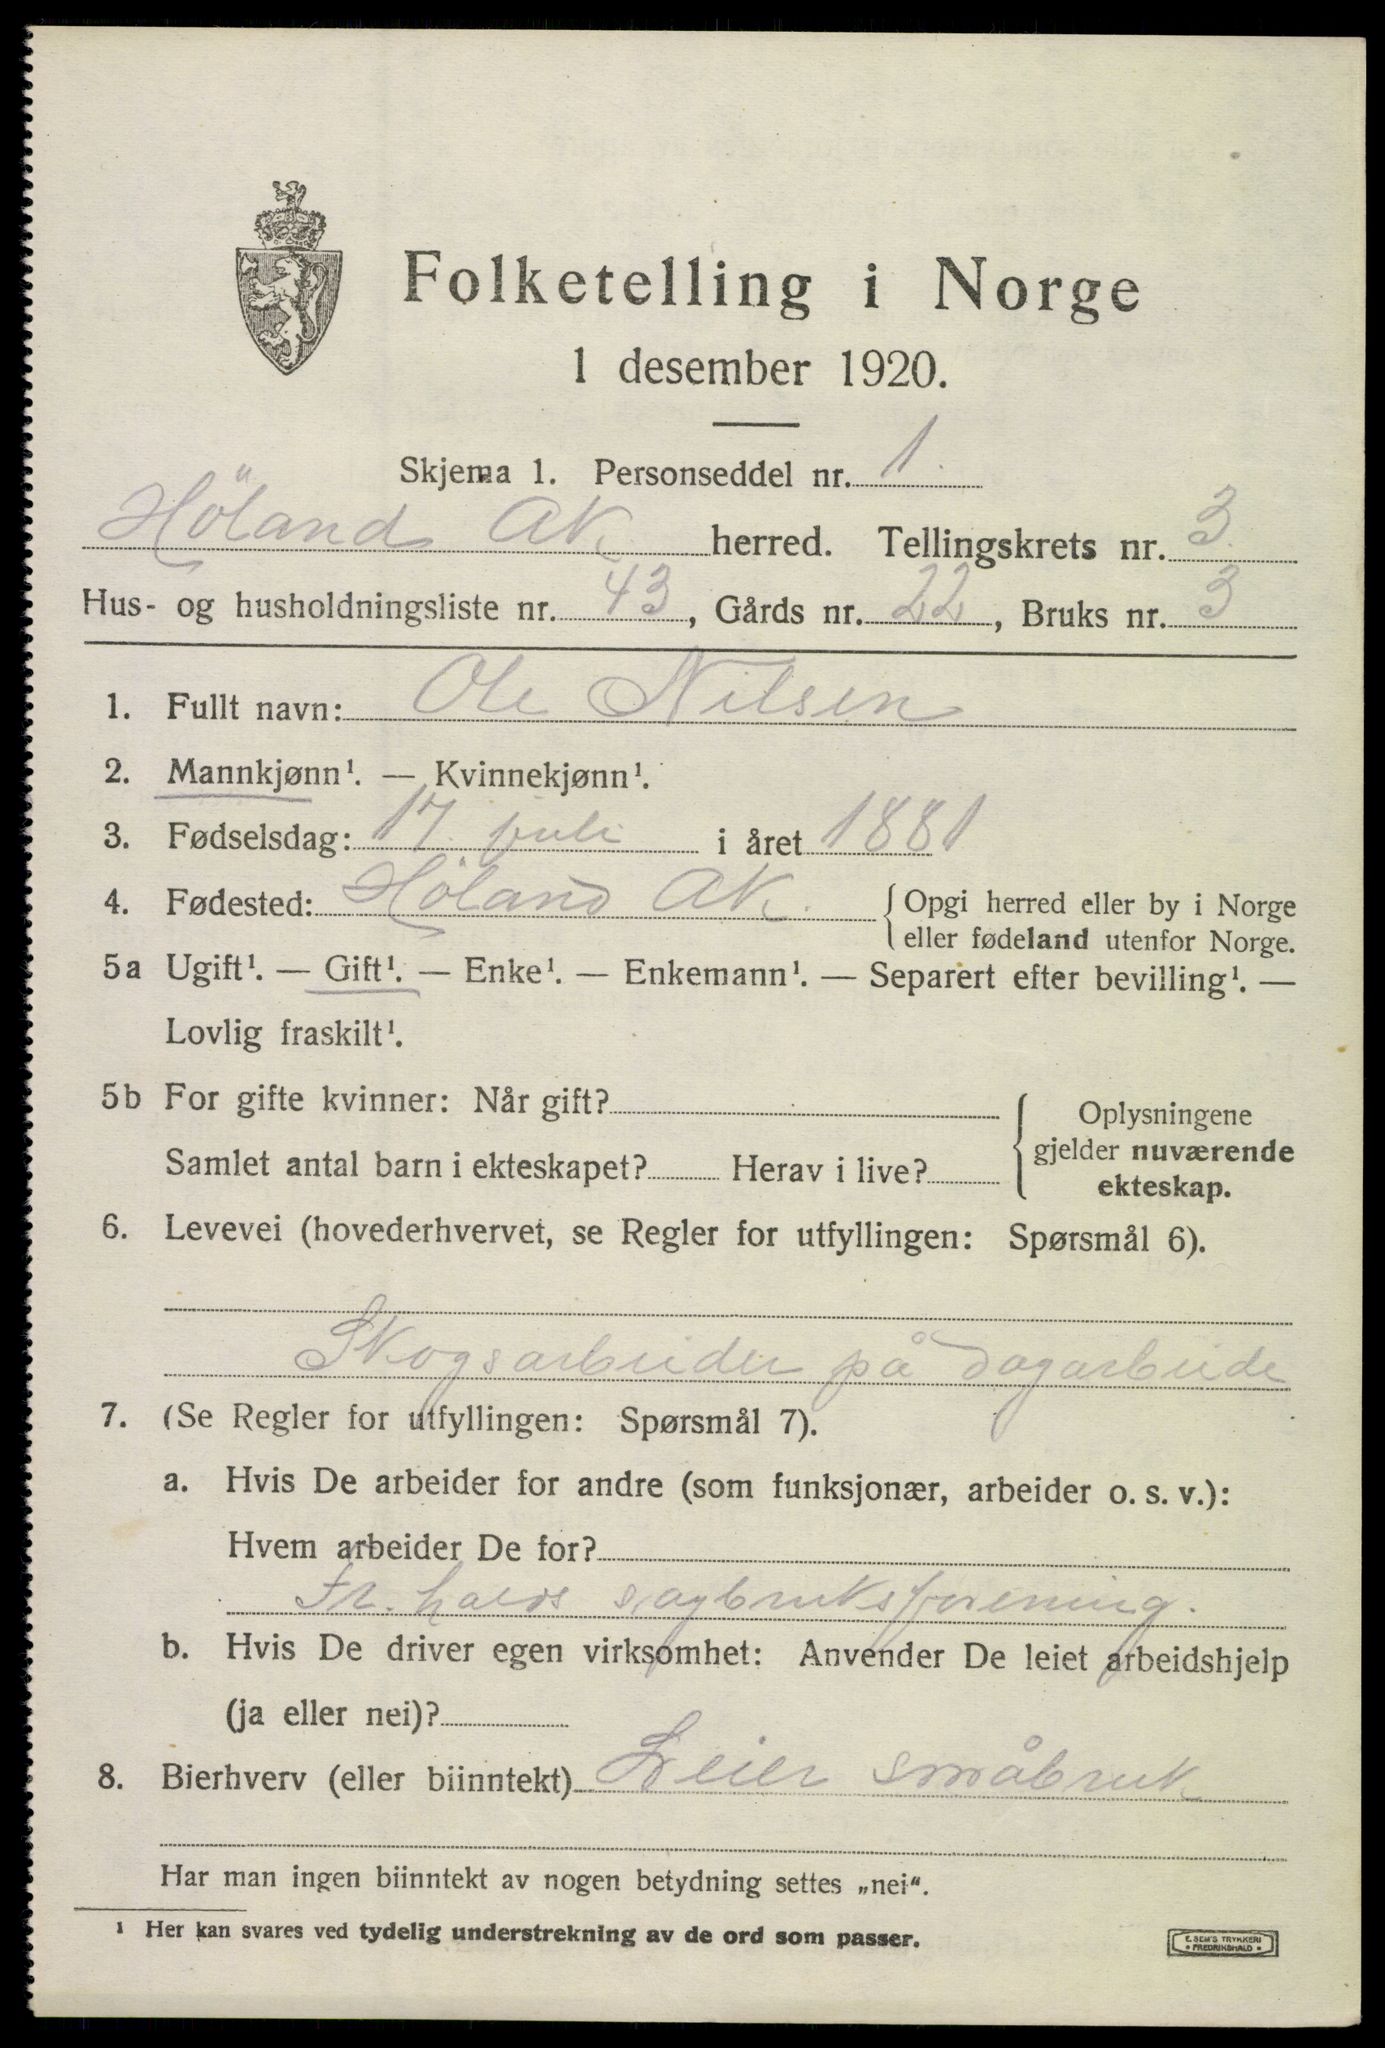 Folketelling i Norge
1 desember 1920.
Skjema 1. Personseddel nr. 1.
Höland AK. herred. Tellingskrets nr. 3.
Hus- og husholdningsliste nr. 43, Gårds nr. 22, Bruks nr. 3
1. Fullt navn: Ole Nilsen
2. Mannkjønn¹. — Kvinnekjønn¹.
3. Fødselsdag: 17. juli i året 1881
4. Fødested: Höland AK. { Opgi herred eller by i Norge
eller fødeland utenfor Norge.
5a Ugift¹. — Gift¹. — Enke¹. — Enkemann¹. — Separert efter bevilling¹. —
Lovlig fraskilt¹.
5b For gifte kvinner: Når gift?
Samlet antal barn i ekteskapet? Herav i live?
{ Oplysningene
gjelder nuværende
ekteskap.
6. Levevei (hovederhvervet, se Regler for utfyllingen: Spørsmål 6).
Skogsarbeider på dagarbeide
7. (Se Regler for utfyllingen: Spørsmål 7).
a. Hvis De arbeider for andre (som funksjonær, arbeider o. s. v.):
Hvem arbeider De for?
Fr. halds sagbruksforening.
b. Hvis De driver egen virksomhet: Anvender De leiet arbeidshjelp
(ja eller nei)?
8. Bierhverv (eller biinntekt) Leier småbruk
Har man ingen biinntekt av nogen betydning settes „nei“.
¹ Her kan svares ved tydelig understrekning av de ord som passer.
E. SEM'S TRYKKERI
• FREDRIKSHALD •